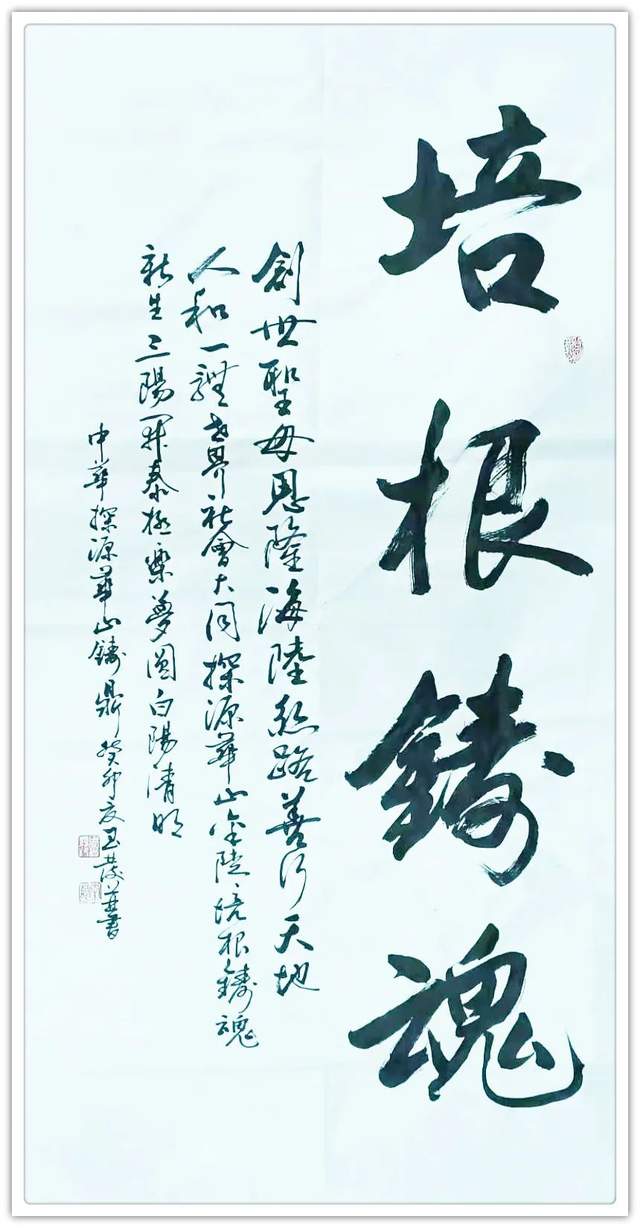 培根鑄魂
創世聖母恩隆海陸絲路善行天地
人和一體世界社會大同探源華山金陵培根鑄魂
新生三陽開泰極樂夢圓白陽清明
中華探源華山鑄鼎癸卯夏
書